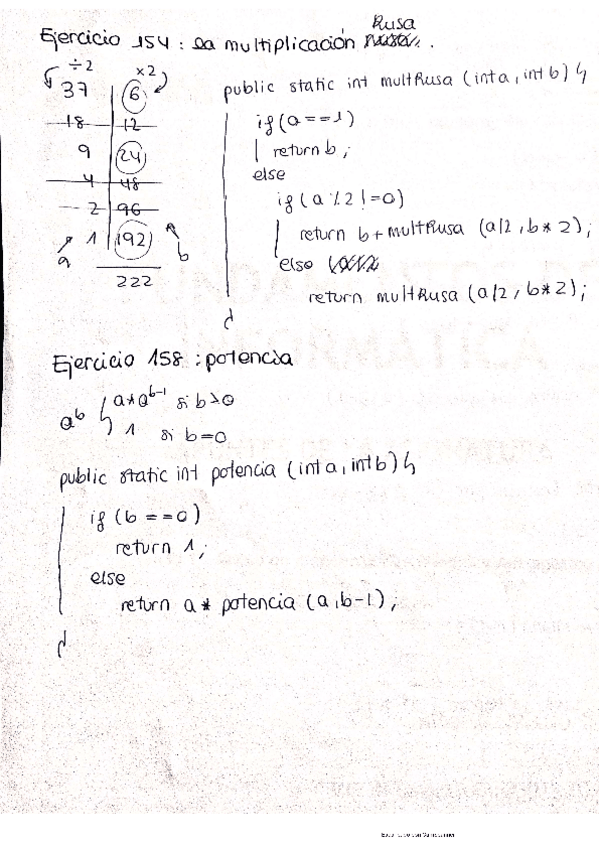 Ejercicio 154: La multiplicación Rusa.
÷2 x2
37 6
18 12
9 24
4 48
2 96
1 192
a b
222
public static int multRusa (int a, int b) {
if (a == 1)
return b;
else
if (a % 2 != 0)
return b + multRusa (a/2, b * 2);
else
return multRusa (a/2, b * 2);
}
Ejercicio 158: potencia
a^b { a * a^b-1 si b>0
1 si b=0
public static int potencia (int a, int b) {
if (b == 0)
return 1;
else
return a * potencia (a, b-1);
}